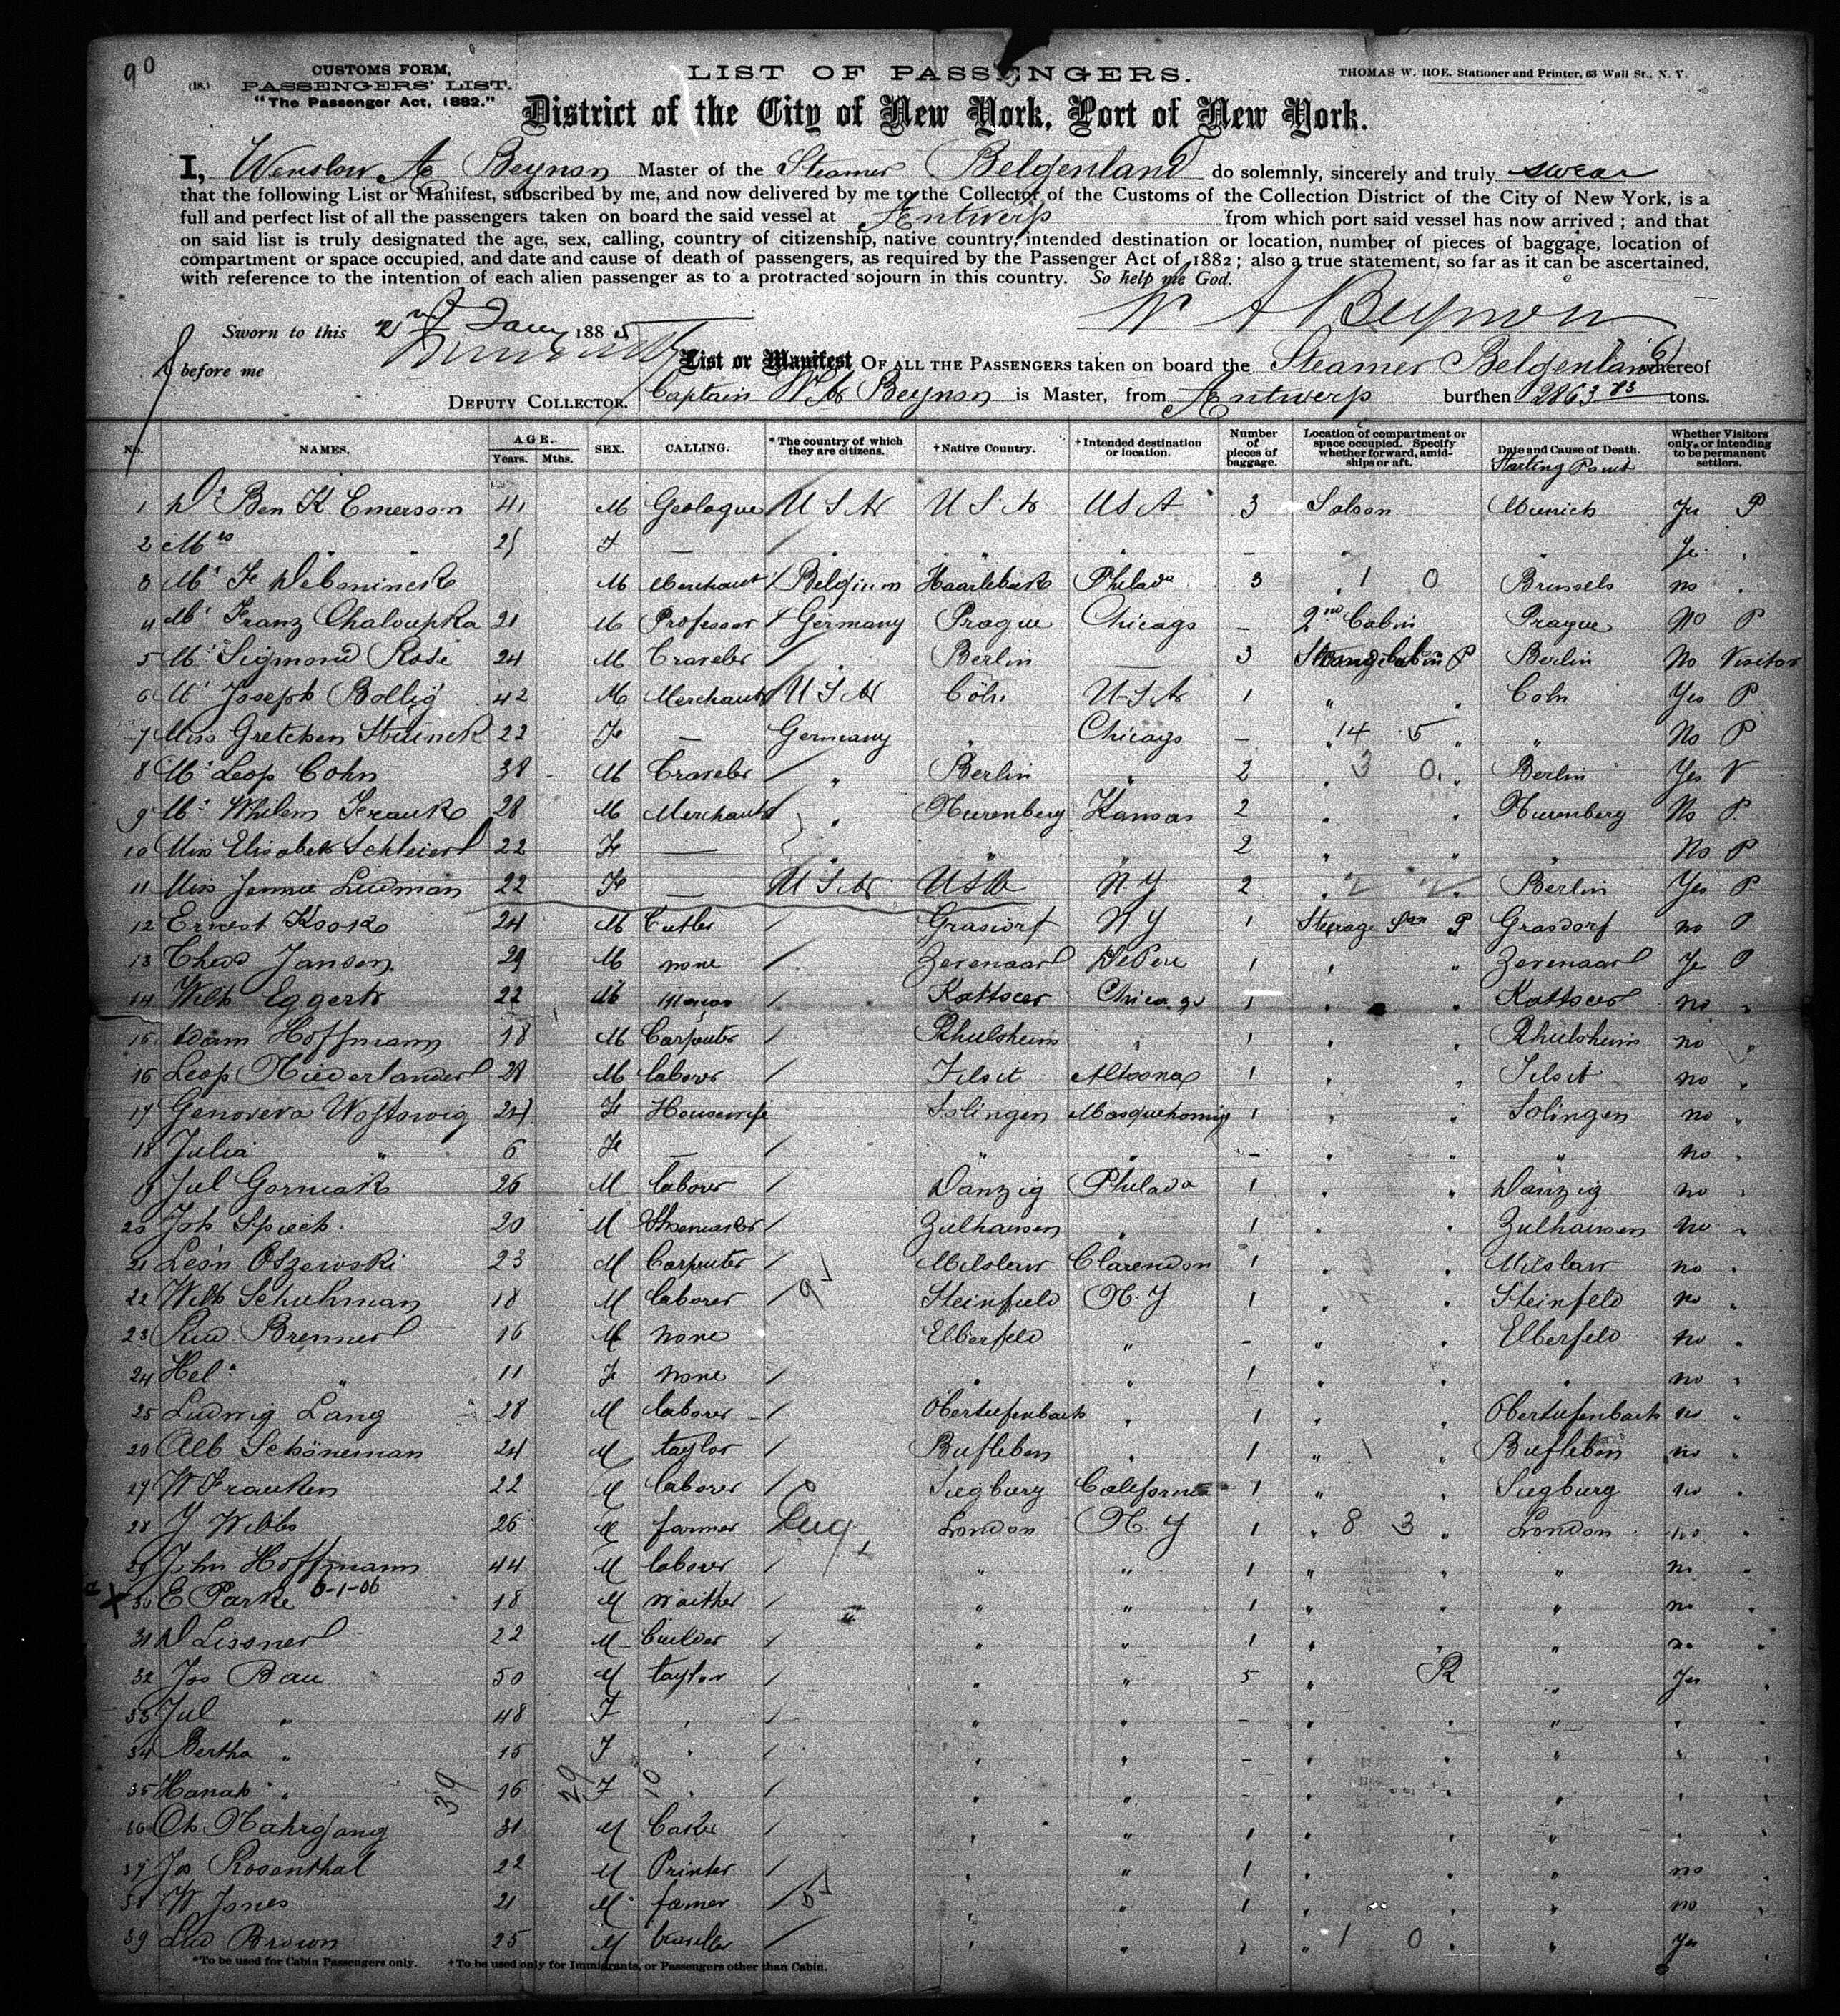 90
(18.)
CUSTOMS FORM,
PASSENGERS' LIST.
"The Passenger Act, 1882."
LIST OF PASSENGERS.
THOMAS W. ROE, Stationer and Printer, 63 Wall St., N. Y.
District of the City of New York, Port of New York.
I, Winslow A Beynon Master of the Steamer Belgenland do solemnly, sincerely and truly swear
that the following List or Manifest, subscribed by me, and now delivered by me to the Collector of the Customs of the Collection District of the City of New York, is a
full and perfect list of all the passengers taken on board the said vessel at Antwerp from which port said vessel has now arrived ; and that
on said list is truly designated the age, sex, calling, country of citizenship, native country, intended destination or location, number of pieces of baggage, location of
compartment or space occupied, and date and cause of death of passengers, as required by the Passenger Act of 1882 ; also a true statement, so far as it can be ascertained,
with reference to the intention of each alien passenger as to a protracted sojourn in this country. So help me God.
W A Beynon
Sworn to this 2nd Jany 1885
before me
DEPUTY COLLECTOR.
List or Manifest OF ALL THE PASSENGERS taken on board the Steamer Belgenland whereof
Captain W A Beynon is Master, from Antwerp burthen 2863 83 tons.
No. NAMES. AGE. Years. Mths. SEX. CALLING. *The country of which they are citizens. †Native Country. †Intended destination or location. Number of pieces of baggage. Location of compartment or space occupied. Specify whether forward, amidships or aft. Date and Cause of Death. Starting Point Whether Visitors only, or intending to be permanent settlers.
1 Dr Ben K Emerson 41 M Geologue U S A U S A U S A 3 Saloon Munich Yes P
2 Mrs " " 25 F — " " " — " " Ye "
3 Mr F Deboninck M Merchant Belgium Haarlebeck Philada 3 " 1 0 Brussels no "
4 Mr Franz Chaloupka 21 M Professor Germany Prague Chicago — 2nd Cabin Prague No P
5 Mr Sigmond Rosé 24 M Traveler " Berlin — 3 P Berlin No Visitor
6 Mr Joseph Bollig 42 M Merchant U S A Cöln U.S.A 1 " " Coln Yes P
7 Miss Gretchen 22 F — Germany " Chicago — " 14 5 " " No P
8 Mr Leop Cohn 38 M Traveler " Berlin " 2 " 3 0 " Berlin Yes V
9 Mr Whilem Frank 28 M Merchant " Nurenberg Kansas 2 " " Nurenberg No P
10 Miss Elisabeth Schleierl 22 F — " " " 2 " " " No P
11 Miss Jennie Ludman 22 F — U S A USA N Y 2 " 2 2 " Berlin Yes P
12 Ernest Kook 24 M Cutler Grasdorf N Y 1 Steerage P Grasdorf no P
13 Theo Jansen 29 M none Zevenaar DePere 1 " " Zevenaar Ye P
14 Wilh Eggert 22 M Chicago 1 " " no "
15 Adam Hoffmann 18 M Carpenter Rhulsheim " 1 " " Rhulsheim no "
16 Leop Niederlander 28 M labour Tilsit Altoona 1 " " Tilsit no "
17 Genoveva 24 F Housewife Solingen 1 " " Solingen no "
18 Julia " 6 F — " " — " " " no "
19 Jul Gorniak 26 M labour Danzig Philada 1 " " Danzig no "
20 Joh Spieck 20 M Shoemaker Zulhausen " 1 " " Zulhausen no "
21 Leon Oszewski 23 M Carpenter Miloslaw Clarendon 1 " " Miloslaw no "
22 Wilh Schuhman 18 M laborer 9 Steinfield N. Y 1 " " Steinfeld no "
23 Rud Brenner 16 M none Elberfeld " - " " Elberfeld no "
24 Hel " 11 F none " " 1 " " " no "
25 Ludwig Lang 28 M laborer Obertiefenbach " 1 " " Obertiefenbach no "
26 Alb Schöneman 24 M taylor Bufleben " 1 " " Bufleben no "
27 W Franken 22 M laborer Siegburg California 1 " " Siegburg no "
28 J Wibbs 26 M farmer Eng London N. Y 1 " 8 3 " London no "
29 John Hoffmann 44 M labour " " 1 " " " no "
X 30 E Parke 6-1-06 18 M waither " " 1 " " " no "
31 D Lissner 22 M builder " " 1 " " " no "
32 Jos Bau 50 M taylor " " 5 " R " Yes "
33 Jul " 48 F " " " - " " " " "
34 Bertha " 15 F " " " - " " " " "
35 Hanah " 39 16 29 F 10 " " " - " " " " "
36 Ch Nahrgang 31 M " " 1 " " " " "
37 Jos Rosenthal 22 M Printer " " 1 " " " no "
38 W Jones 21 M farmer 5 " " 1 " " " no "
39 Lud Brown 25 M traveller " " 1 " 1 0 " " Yes "
*To be used for Cabin Passengers only. †To be used only for Immigrants, or Passengers other than Cabin.